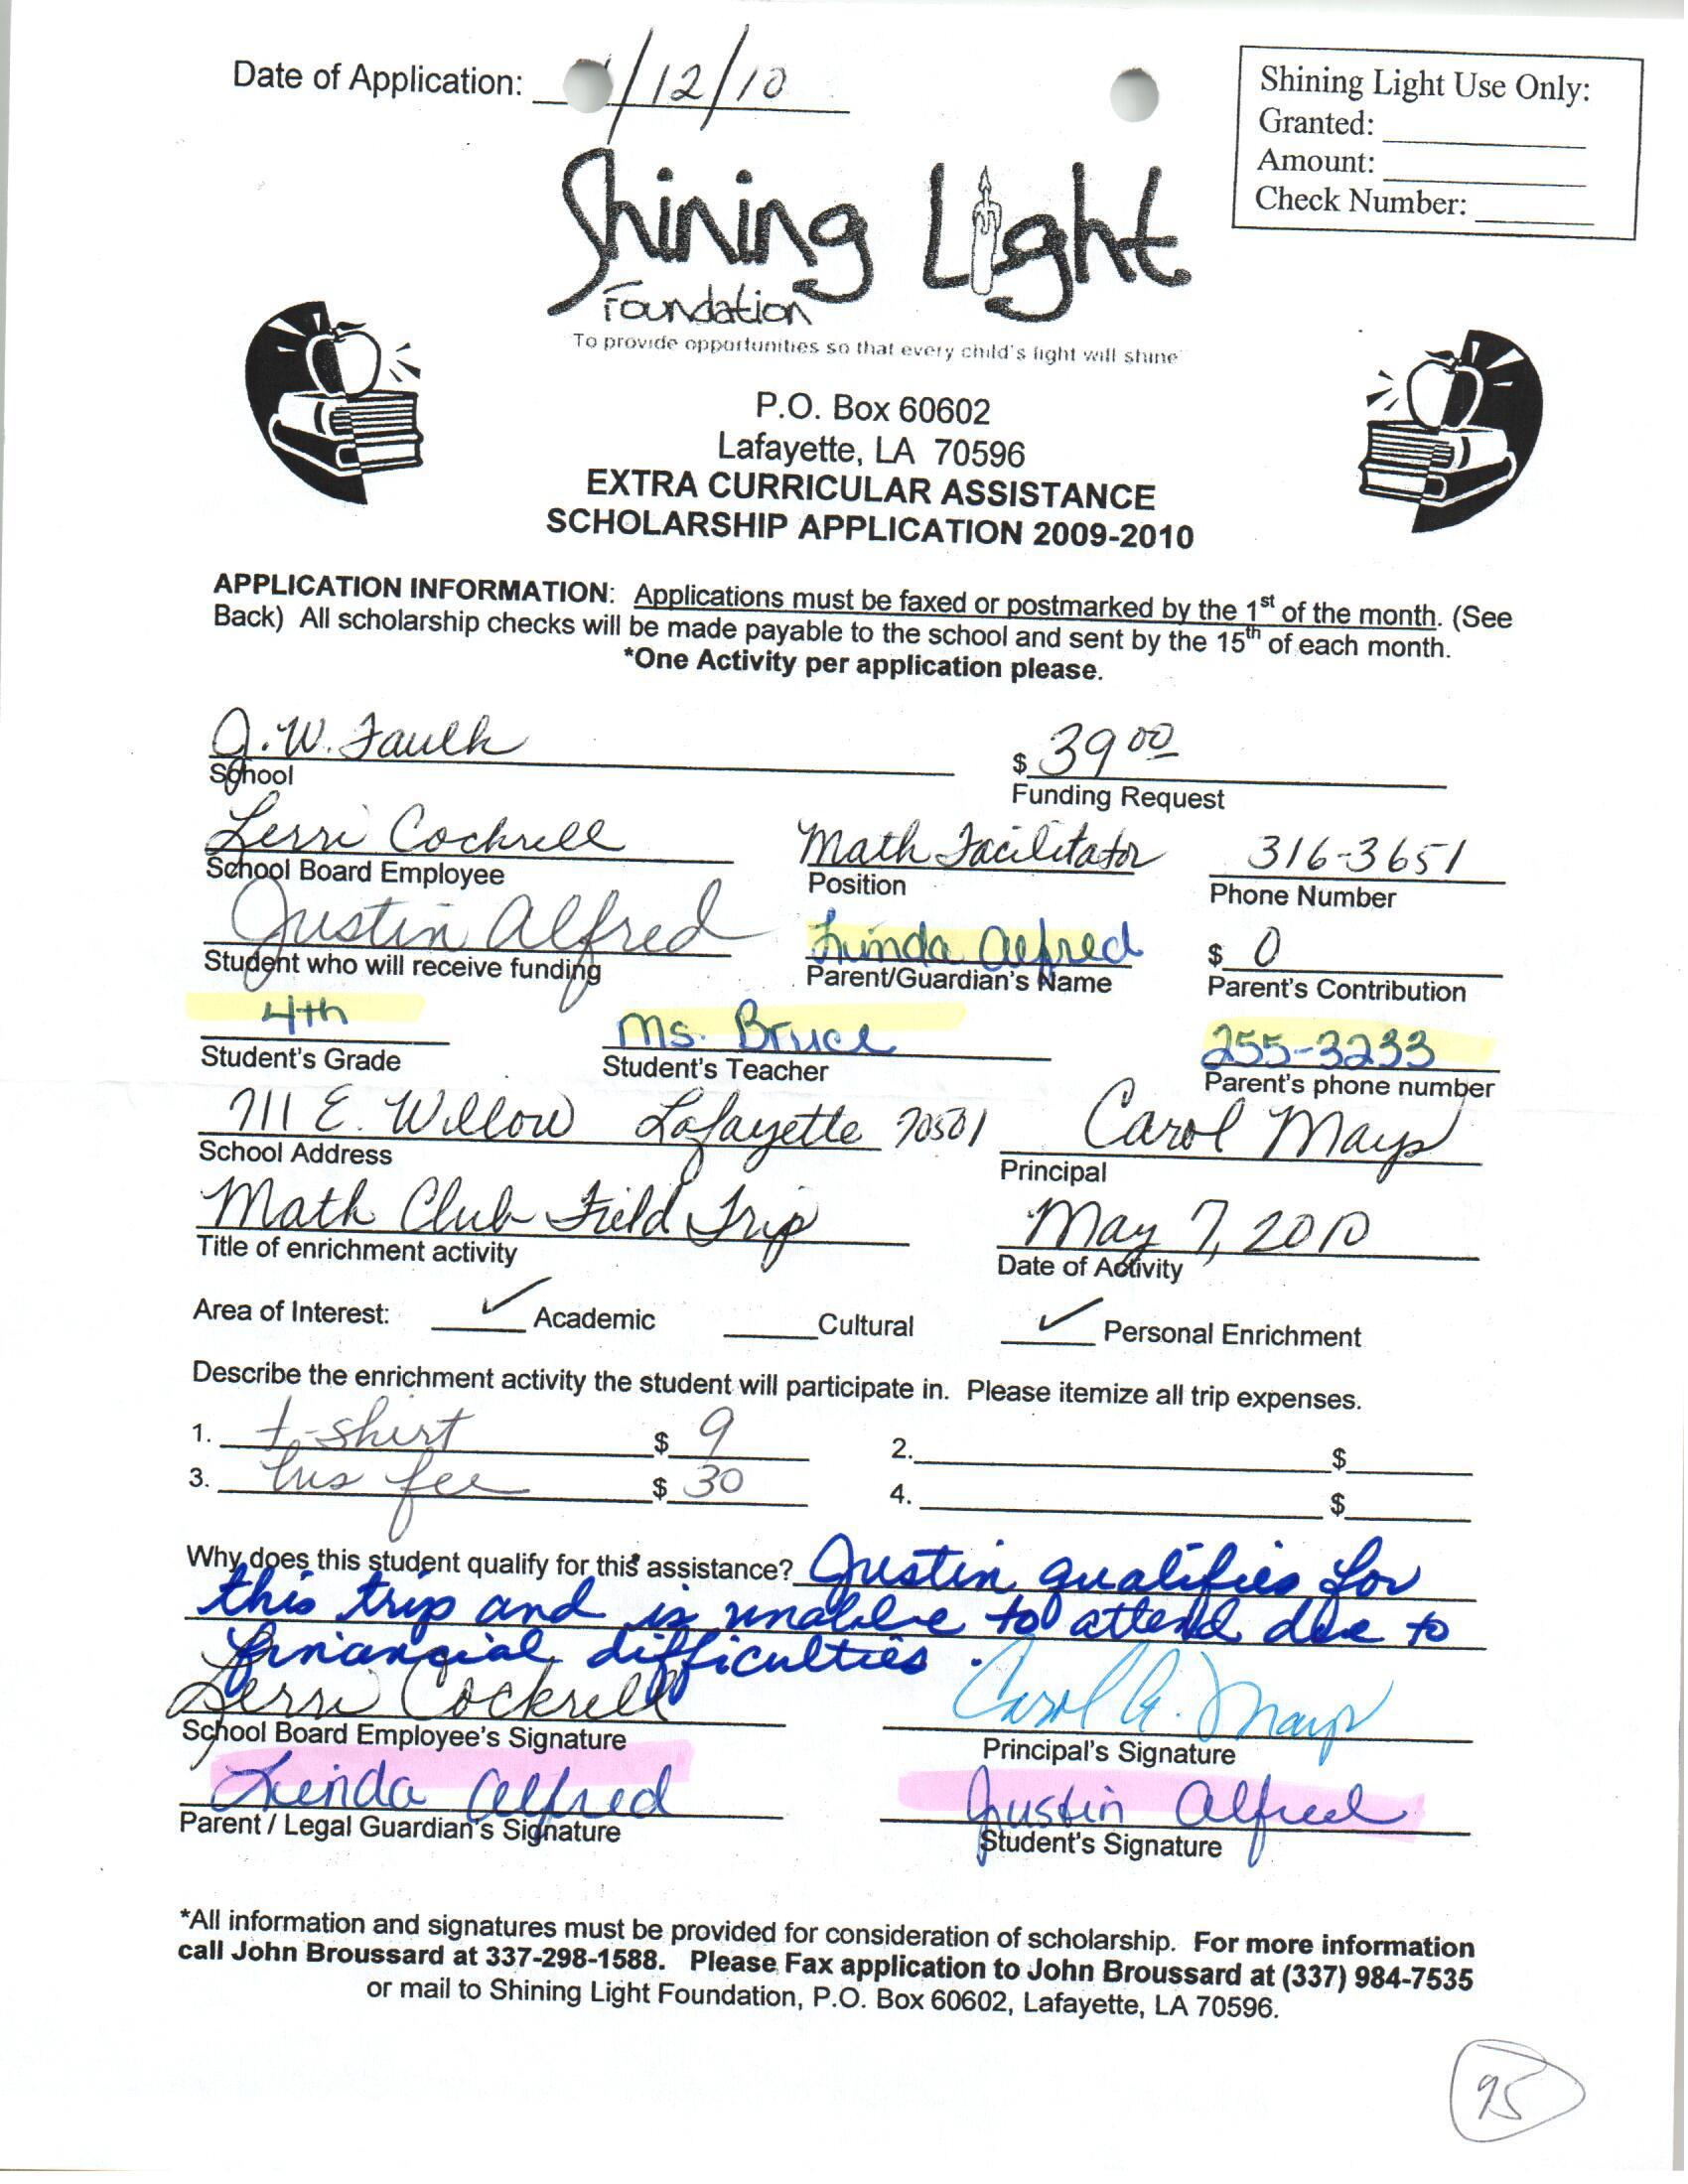 Date of Application: /12/10
Shining Light Use Only:
Granted:
Amount:
Check Number:
Shining Light
Foundation
To provide opportunities so that every child's light will shine
P.O. Box 60602
Lafayette, LA 70596
EXTRA CURRICULAR ASSISTANCE
SCHOLARSHIP APPLICATION 2009-2010
APPLICATION INFORMATION: Applications must be faxed or postmarked by the 1st of the month. (See
Back) All scholarship checks will be made payable to the school and sent by the 15th of each month.
*One Activity per application please.
J.W. Faulk $ 39 00
School Funding Request
Terri Cockrell Math Facilitator 316-3651
School Board Employee Position Phone Number
Justin Alfred Linda Alfred $ 0
Student who will receive funding Parent/Guardian's Name Parent's Contribution
4th Ms. Bruce 255-3233
Student's Grade Student's Teacher Parent's phone number
711 E. Willow Lafayette 70501 Carol Mays
School Address Principal
Math Club Field Trip May 7, 2010
Title of enrichment activity Date of Activity
Area of Interest: ✓ Academic Cultural ✓ Personal Enrichment
Describe the enrichment activity the student will participate in. Please itemize all trip expenses.
1. t-shirt $ 9 2. $
3. bus fee $ 30 4. $
Why does this student qualify for this assistance? Justin qualifies for
this trip and is unable to attend due to
financial difficulties.
Terri Cockrell Carol A. Mays
School Board Employee's Signature Principal's Signature
Linda Alfred Justin Alfred
Parent / Legal Guardian's Signature Student's Signature
*All information and signatures must be provided for consideration of scholarship. For more information
call John Broussard at 337-298-1588. Please Fax application to John Broussard at (337) 984-7535
or mail to Shining Light Foundation, P.O. Box 60602, Lafayette, LA 70596.
95